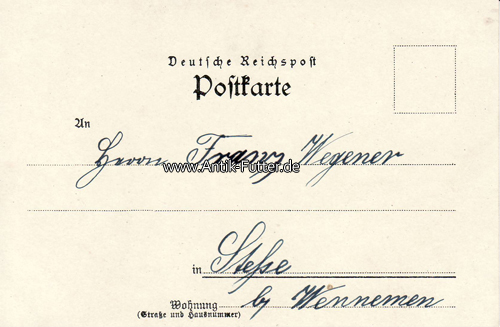 Deutsche Reichspost
Postkarte
An
Herrn Franz Wegener
www.Antik-Futter.de
in Stesse
Wohnung by Wennemen
(Straße und Hausnummer)